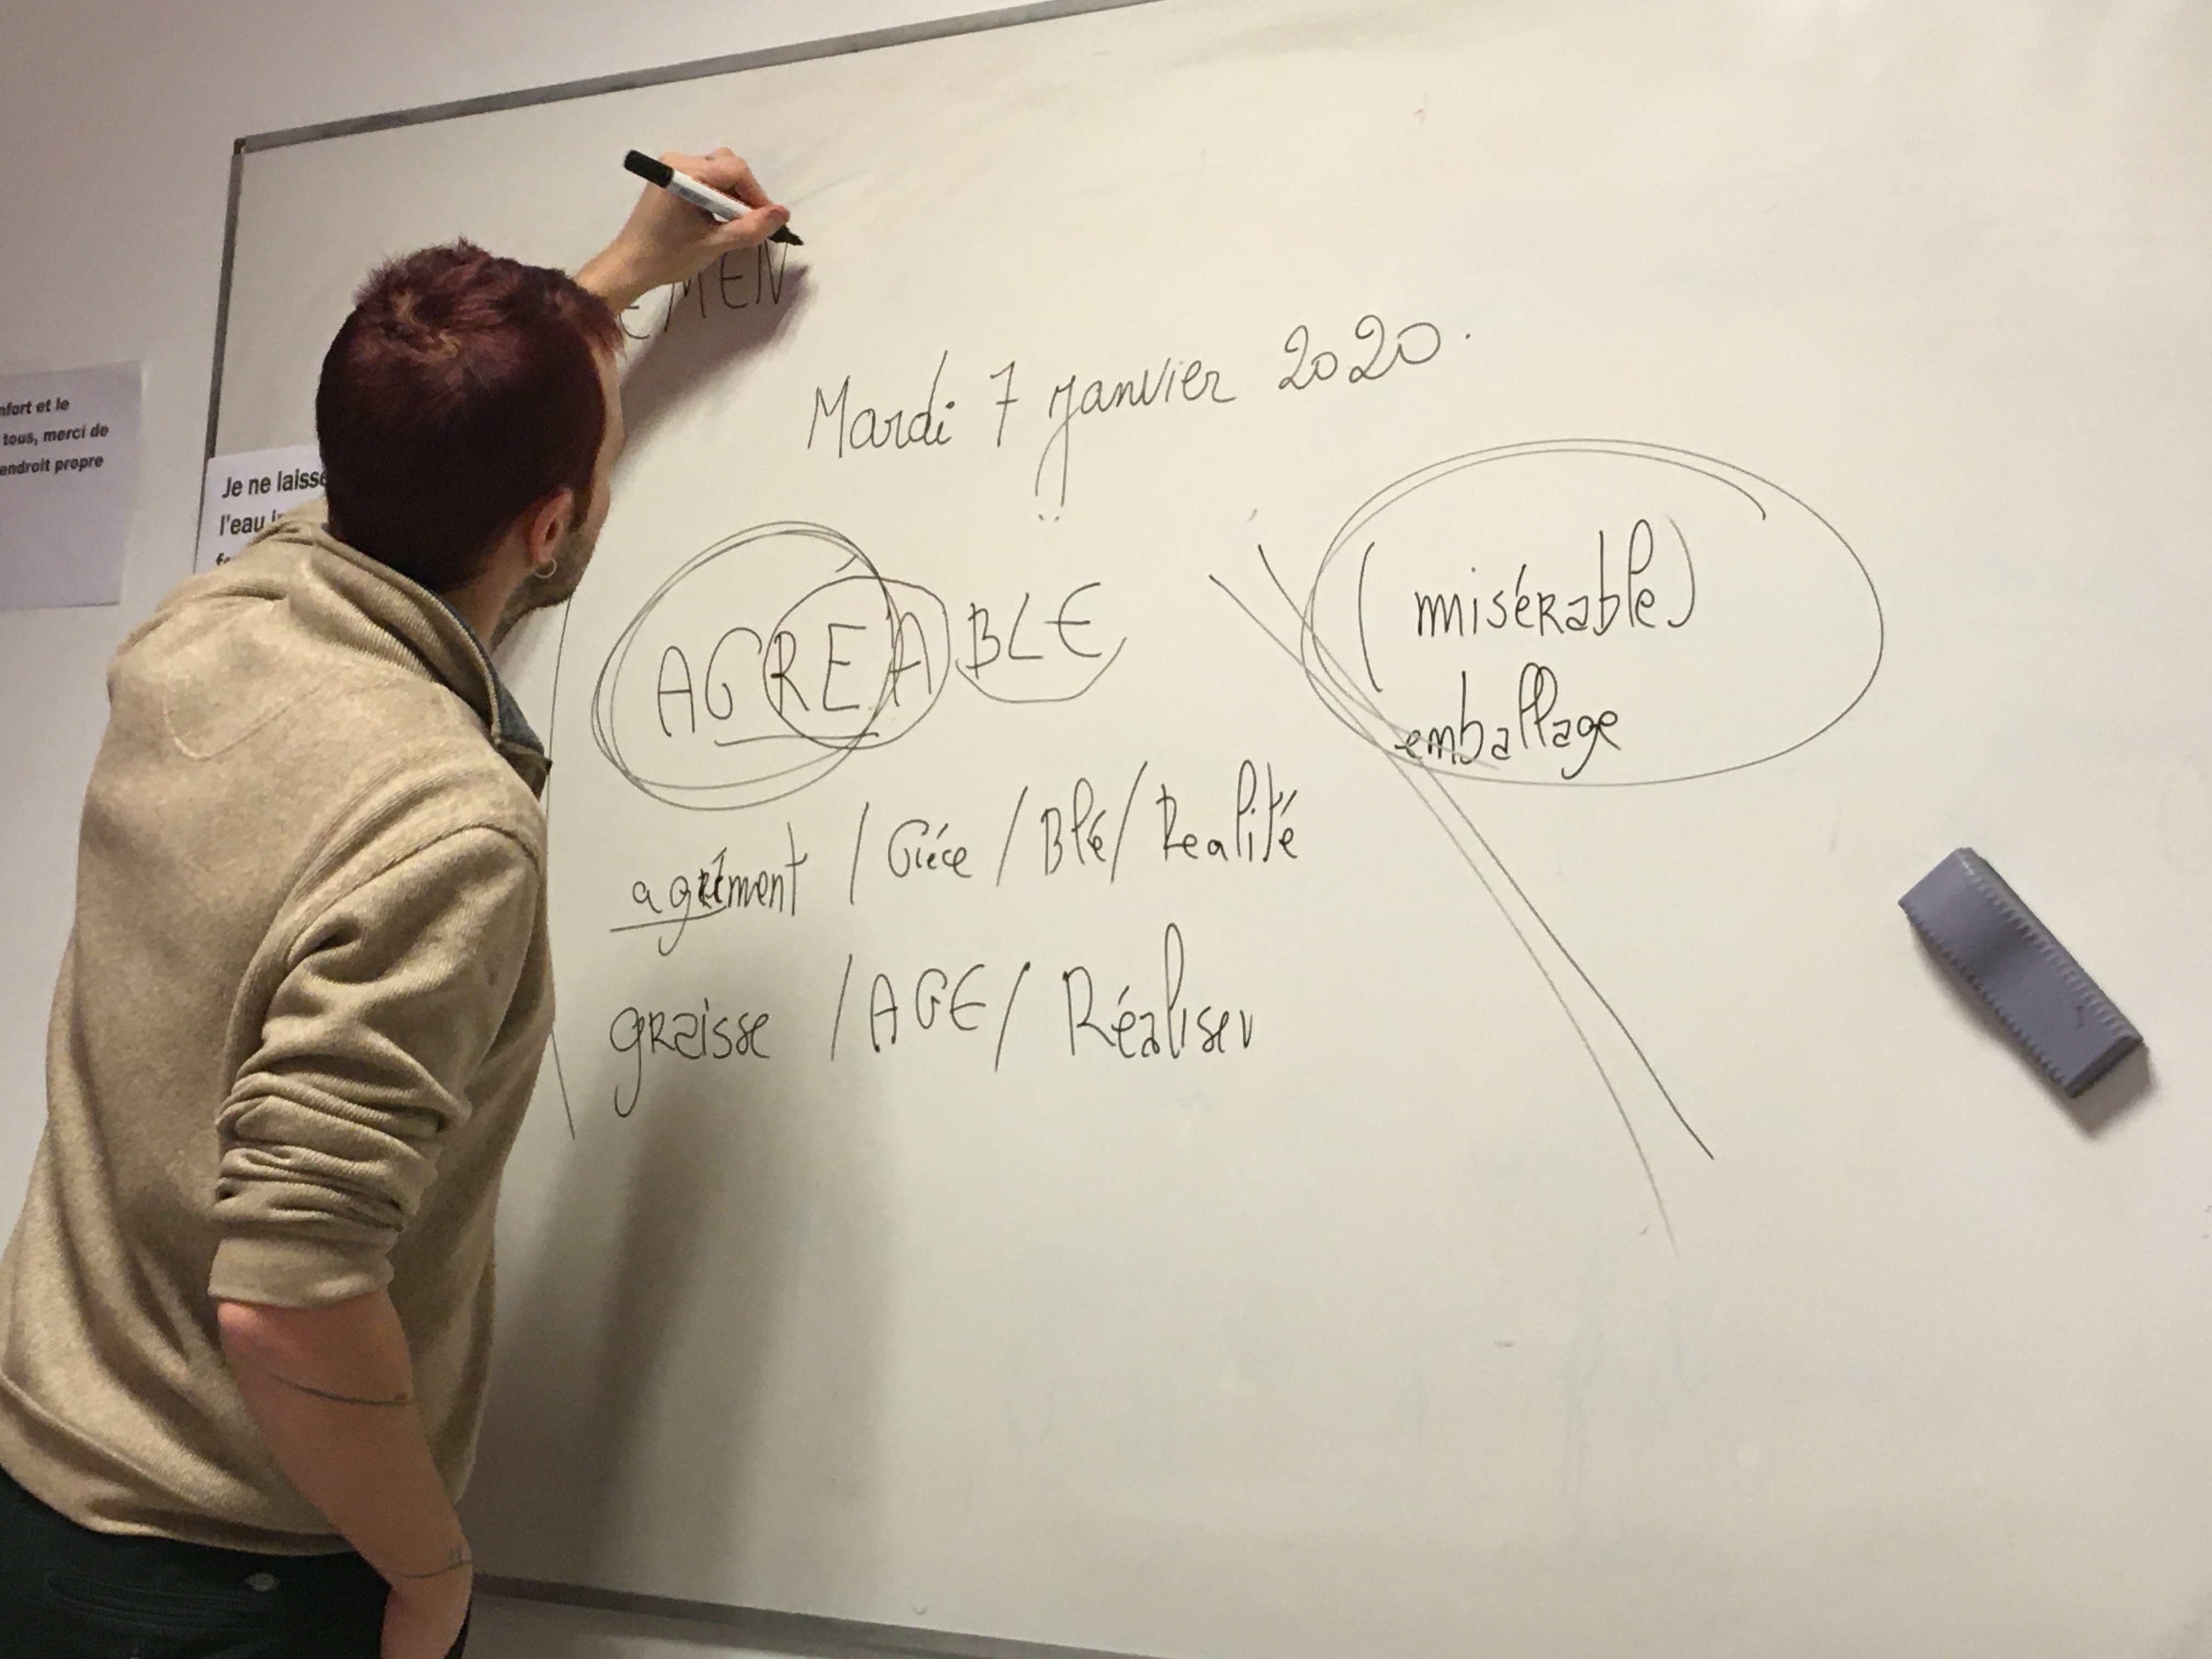 nfort et le
tous, merci de
endroit propre
Je ne laisse
l'eau
EMEN
Mardi 7 janvier 2020.
AGREABLE
(misérable)
emballage
agrément / Gréce / Blé / Realité
graisse / AGE / Réaliser